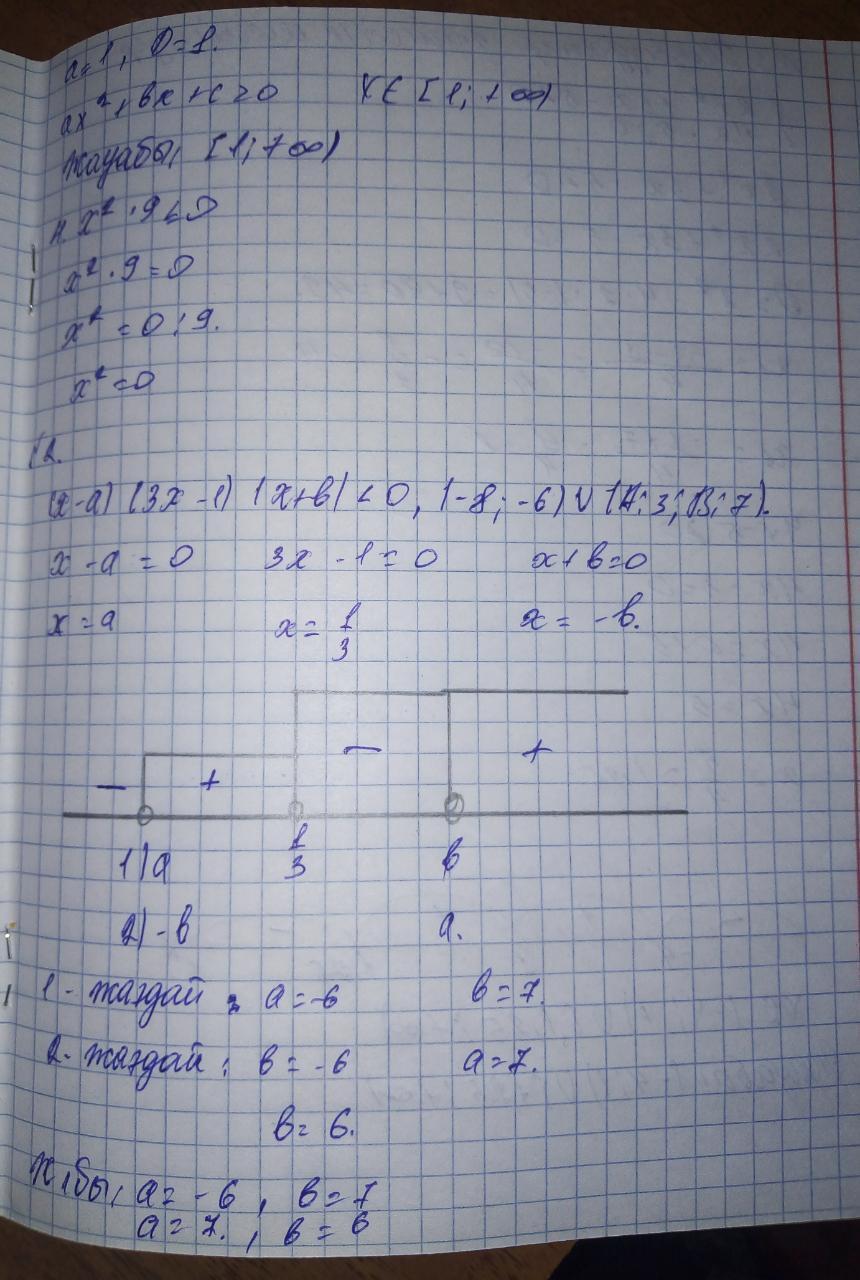 a=1, D=1.
ax²+bx+c≥0 x∈[1;+∞)
Жауабы: [1;+∞)
x²·9<0
x²·9=0
x²=0:9.
x²=0
12.
(x-a)(3x-1)(x+b)<0, (-8;-6)∪(1/3;7).
x-a=0 3x-1=0 x+b=0
x=a x=1/3 x=-b.
- + - +
1)a 1/3 b
2)-b a.
1-жағдай: a=-6 b=7.
2-жағдай: b=-6 a=7.
b=6.
Ж/бы: a=-6, b=7
a=7., b=6